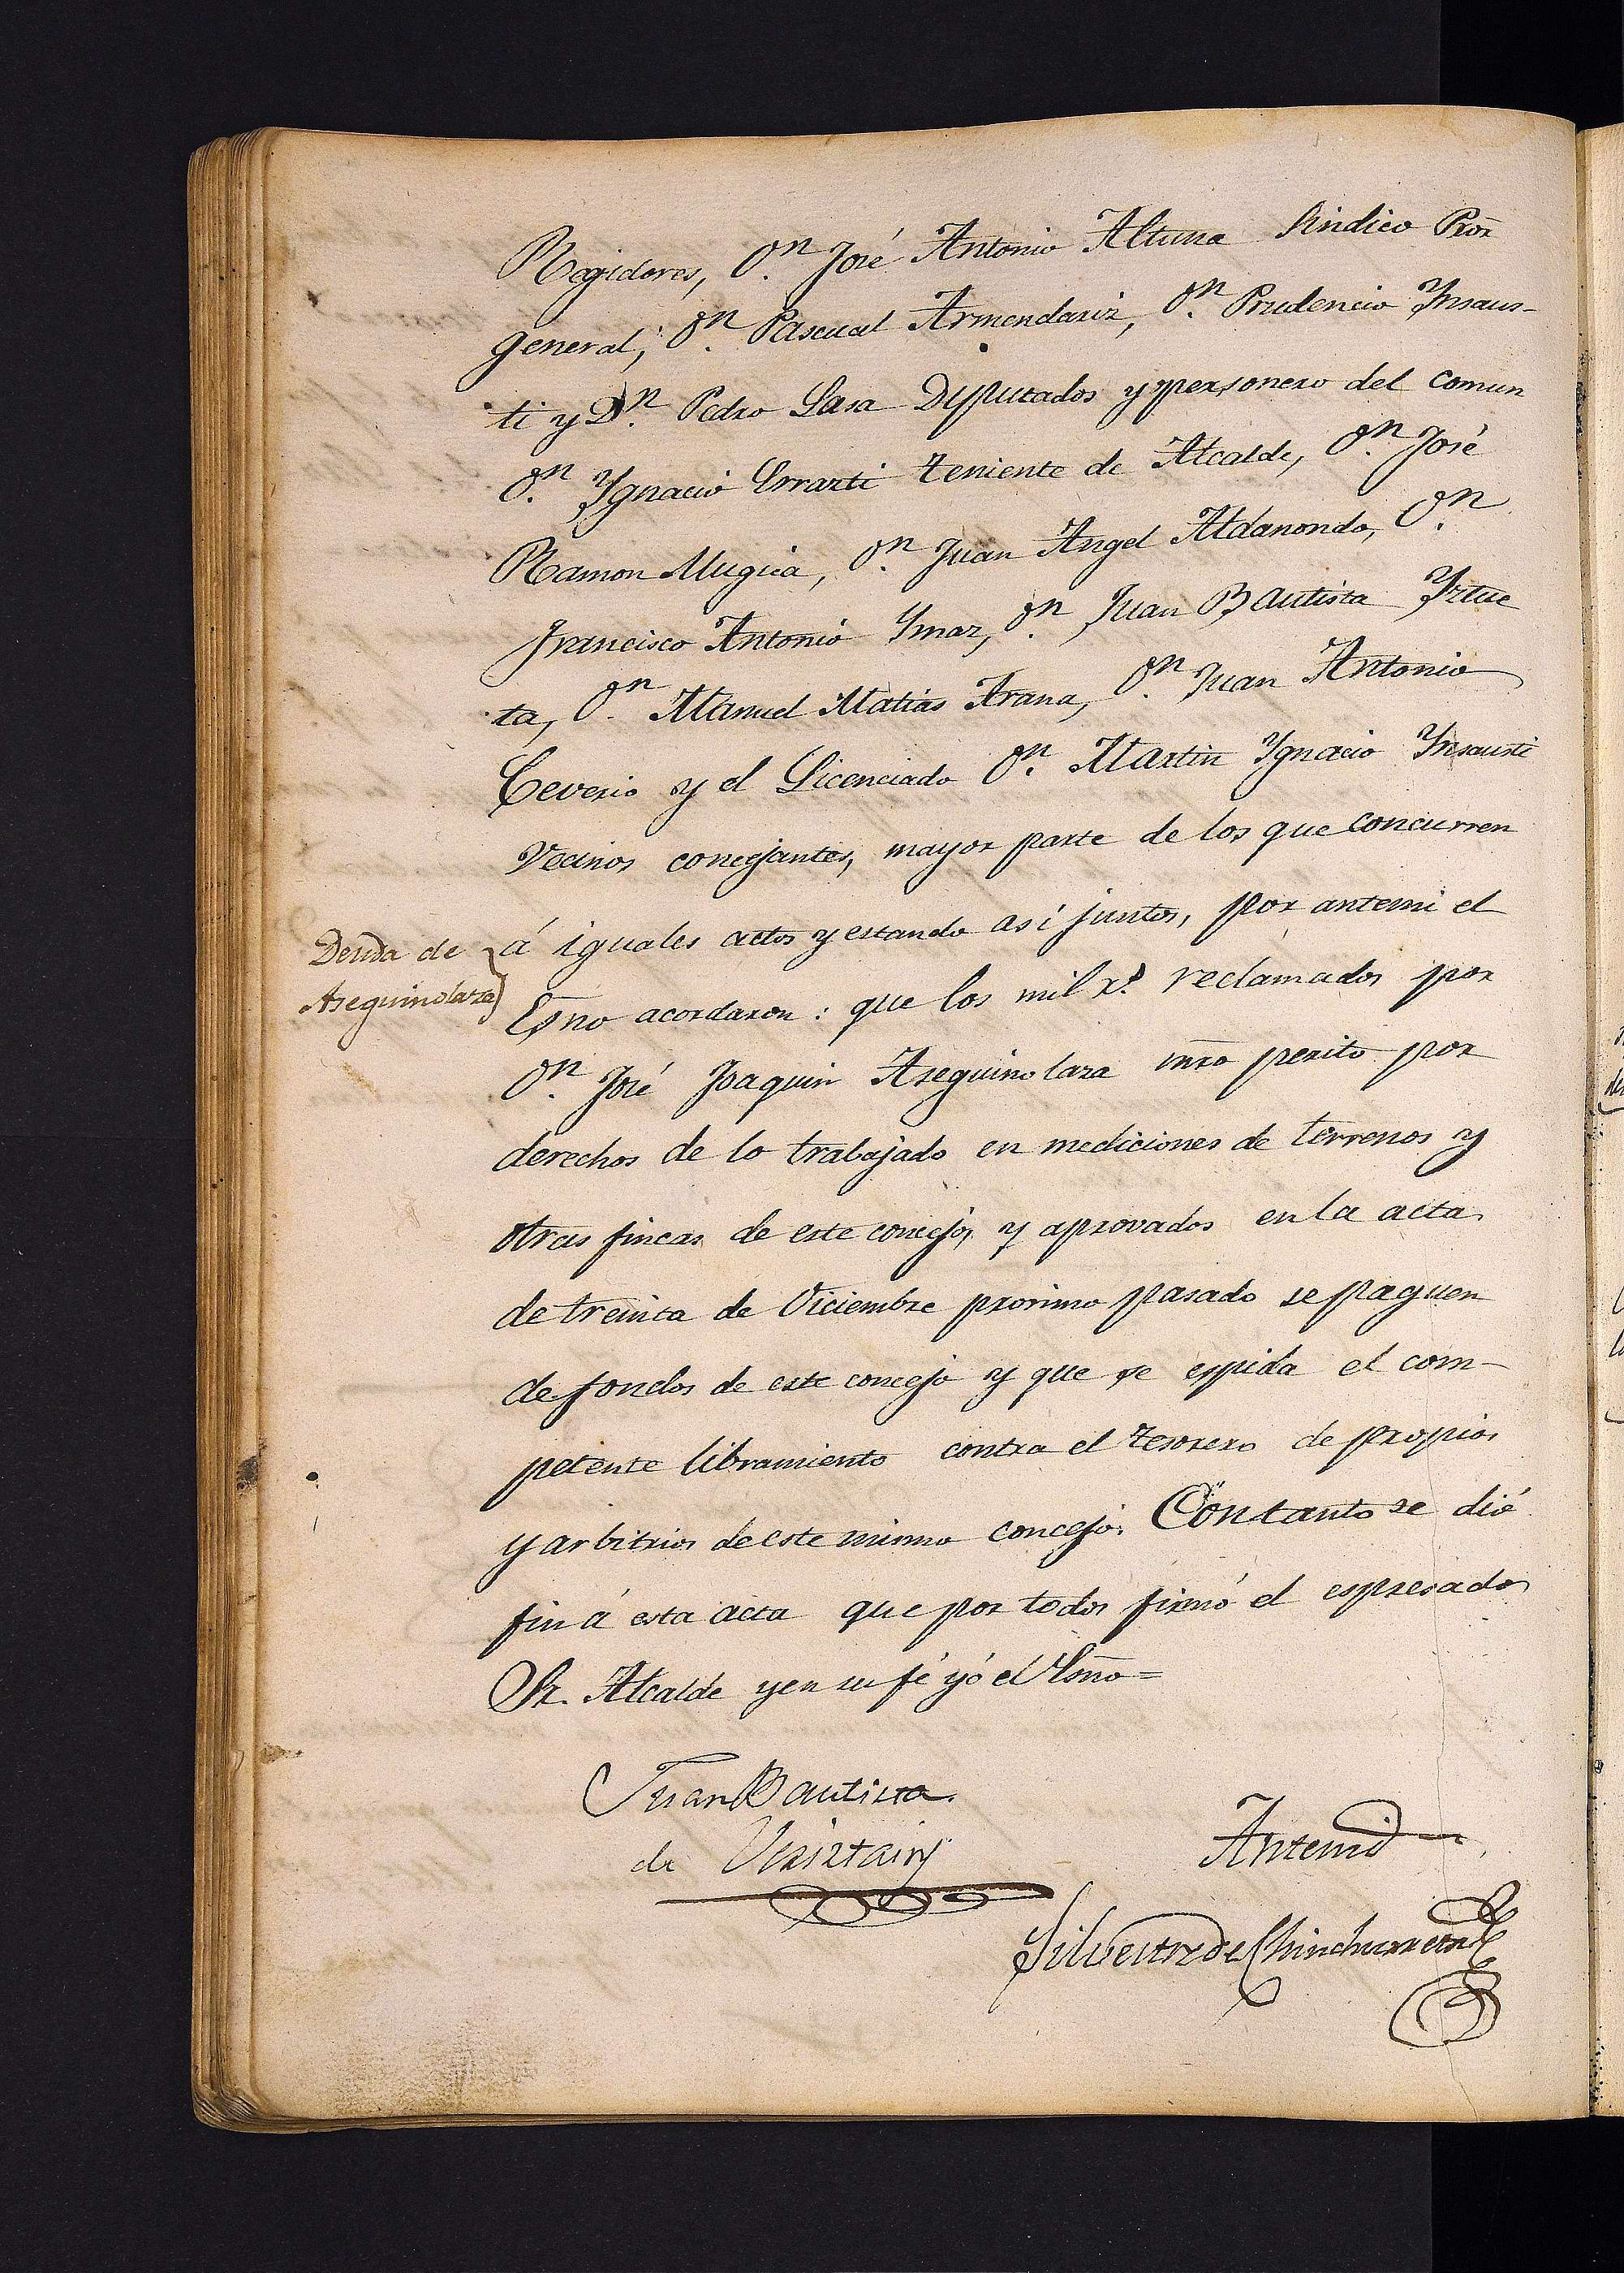 Regidores, Dn. José Antonio Altuna Sindico Pror
general, Dn. Pascual Armendariz, Dn. Prudencio Ynsaus-
ti y Dn. Pedro Lasa Diputados y personero del comun
Dn. Ygnacio Errazti teniente de Alcalde, Dn. José
Ramon Mugica, Dn. Juan Angel Aldanondo, Dn.
Francisco Antonio Ymaz, Dn. Juan Bautista Yztue
ta, Dn. Manuel Matias Arana, Dn. Juan Antonio
Ceverio y el Licenciado Dn. Martin Ygnacio Ynsausti
Vecinos concejantes, mayor parte de los que concurren
Deuda de
Aseguinolaza
á iguales actos y estando asi juntos, por antemi el
Esno acordaron: que los mil rs. reclamados por
Dn. José Joaquin Aseguinolaza mro perito por
derechos de lo trabajado en mediciones de terrenos y
otras fincas de este concejo, y aprovados en la acta
de treinta de Diciembre procimo pasado se paguen
de fondos de este concejo y que se espida el com-
petente libramiento contra el tesorero de propios
y arbitrios de este mismo concejo. Con tanto se dió
fin á esta acta que por todos firmó el espresado
Sr. Alcalde y en su fé yó el Esno=
Juan Bautista
de
Antemi
Silvestre de Chinchurreta